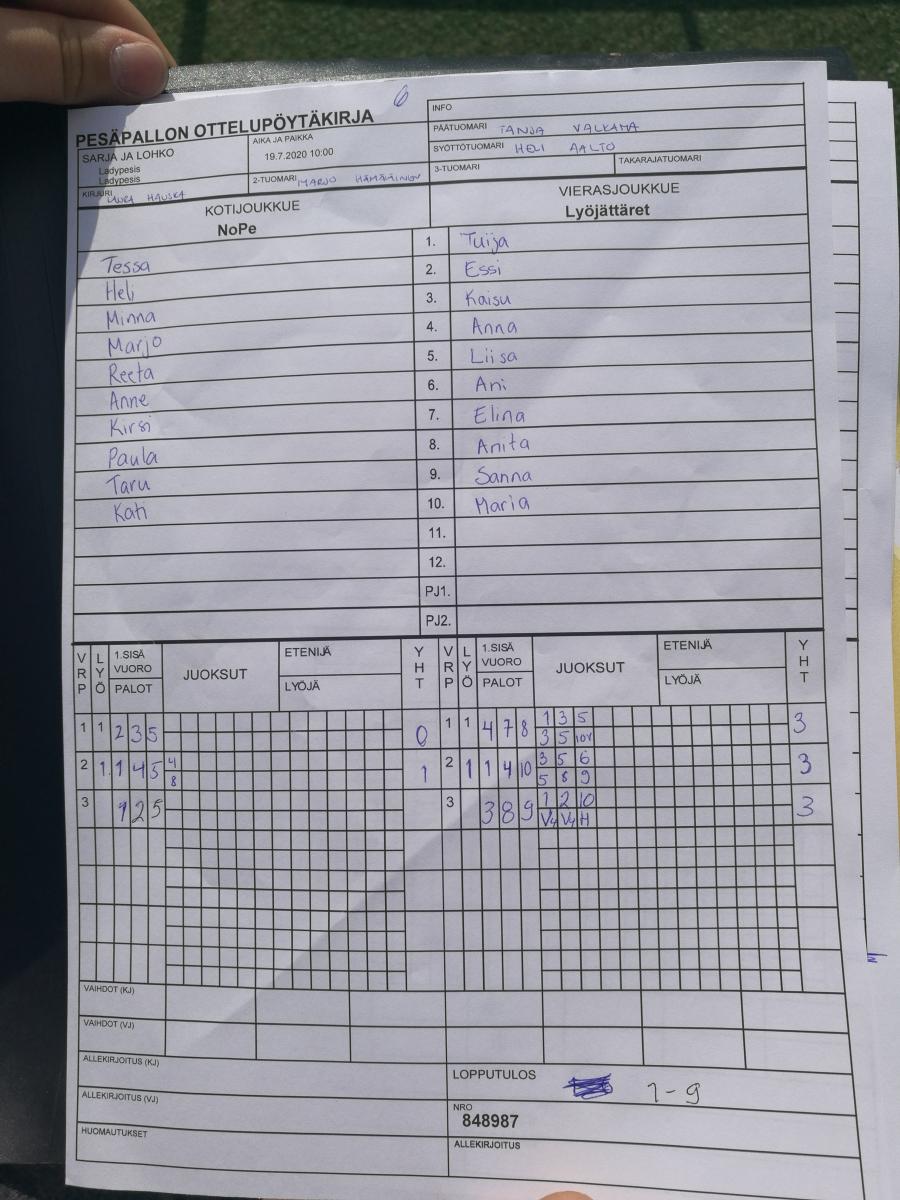 6
PESÄPALLON OTTELUPÖYTÄKIRJA
SARJA JA LOHKO
Ladypesis
Ladypesis
AIKA JA PAIKKA
19.7.2020 10:00
KIRJURI LAURA HAUSKA
2-TUOMARI MARJO HÄMÄLÄINEN
INFO
PÄÄTUOMARI TANJA VALKAMA
SYÖTTÖTUOMARI HELI AALTO
3-TUOMARI TAKARAJATUOMARI
KOTIJOUKKUE VIERASJOUKKUE
NoPe Lyöjättäret
Tessa 1. Tuija
Heli 2. Essi
Minna 3. Kaisu
Marjo 4. Anna
Reeta 5. Liisa
Anne 6. Ani
Kirsi 7. Elina
Paula 8. Anita
Taru 9. Sanna
Kati 10. Maria
11.
12.
PJ1.
PJ2.
VRP LYÖ 1.SISÄ VUORO PALOT JUOKSUT ETENIJÄ LYÖJÄ YHT VRP LYÖ 1.SISÄ VUORO PALOT JUOKSUT ETENIJÄ LYÖJÄ YHT
1 1 2 3 5 0 1 1 4 7 8 1 3 5 3
3 5 10V
2 1. 1 4 5 4 1 2 1 1 4 10 3 5 6 3
8 5 8 9
3 1 2 5 3 3 8 9 1 2 10 3
V4 V4 H
VAIHDOT (KJ)
VAIHDOT (VJ)
ALLEKIRJOITUS (KJ)
ALLEKIRJOITUS (VJ)
HUOMAUTUKSET
LOPPUTULOS 1-9
NRO
848987
ALLEKIRJOITUS